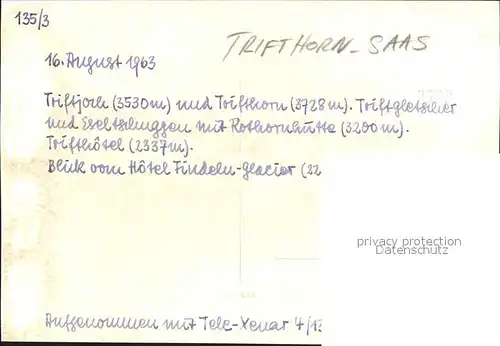 135/3
TRIFTHORN-SAAS
16. August 1963
Triftjoch (3530m) und Trifthorn (3728m). Triftgletscher
und Eseltschuggen mit Rothornhütte (3200m).
Trifthôtel (2337m).
Blick vom Hôtel Findeln-glacier (22
privacy protection
DATENSCHUTZ
Aufgenommen mit Tele-Xenar 4/13